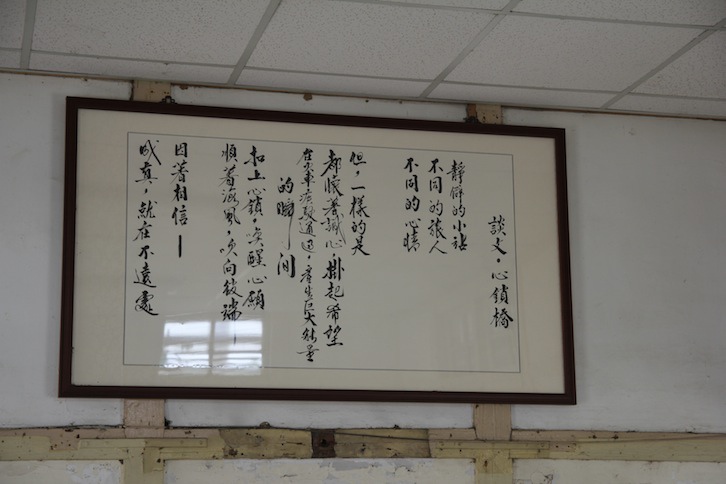 談文，心鎖橋
靜僻的小站
不同的旅人
不同的心情
但，一樣的是
都懷著誠心，掛起希望
在火車疾駛通過，產生巨大能量
的瞬間
扣上心鎖，喚醒心願
順著海風，吹向彼端—
因著相信—
成真，就在不遠處